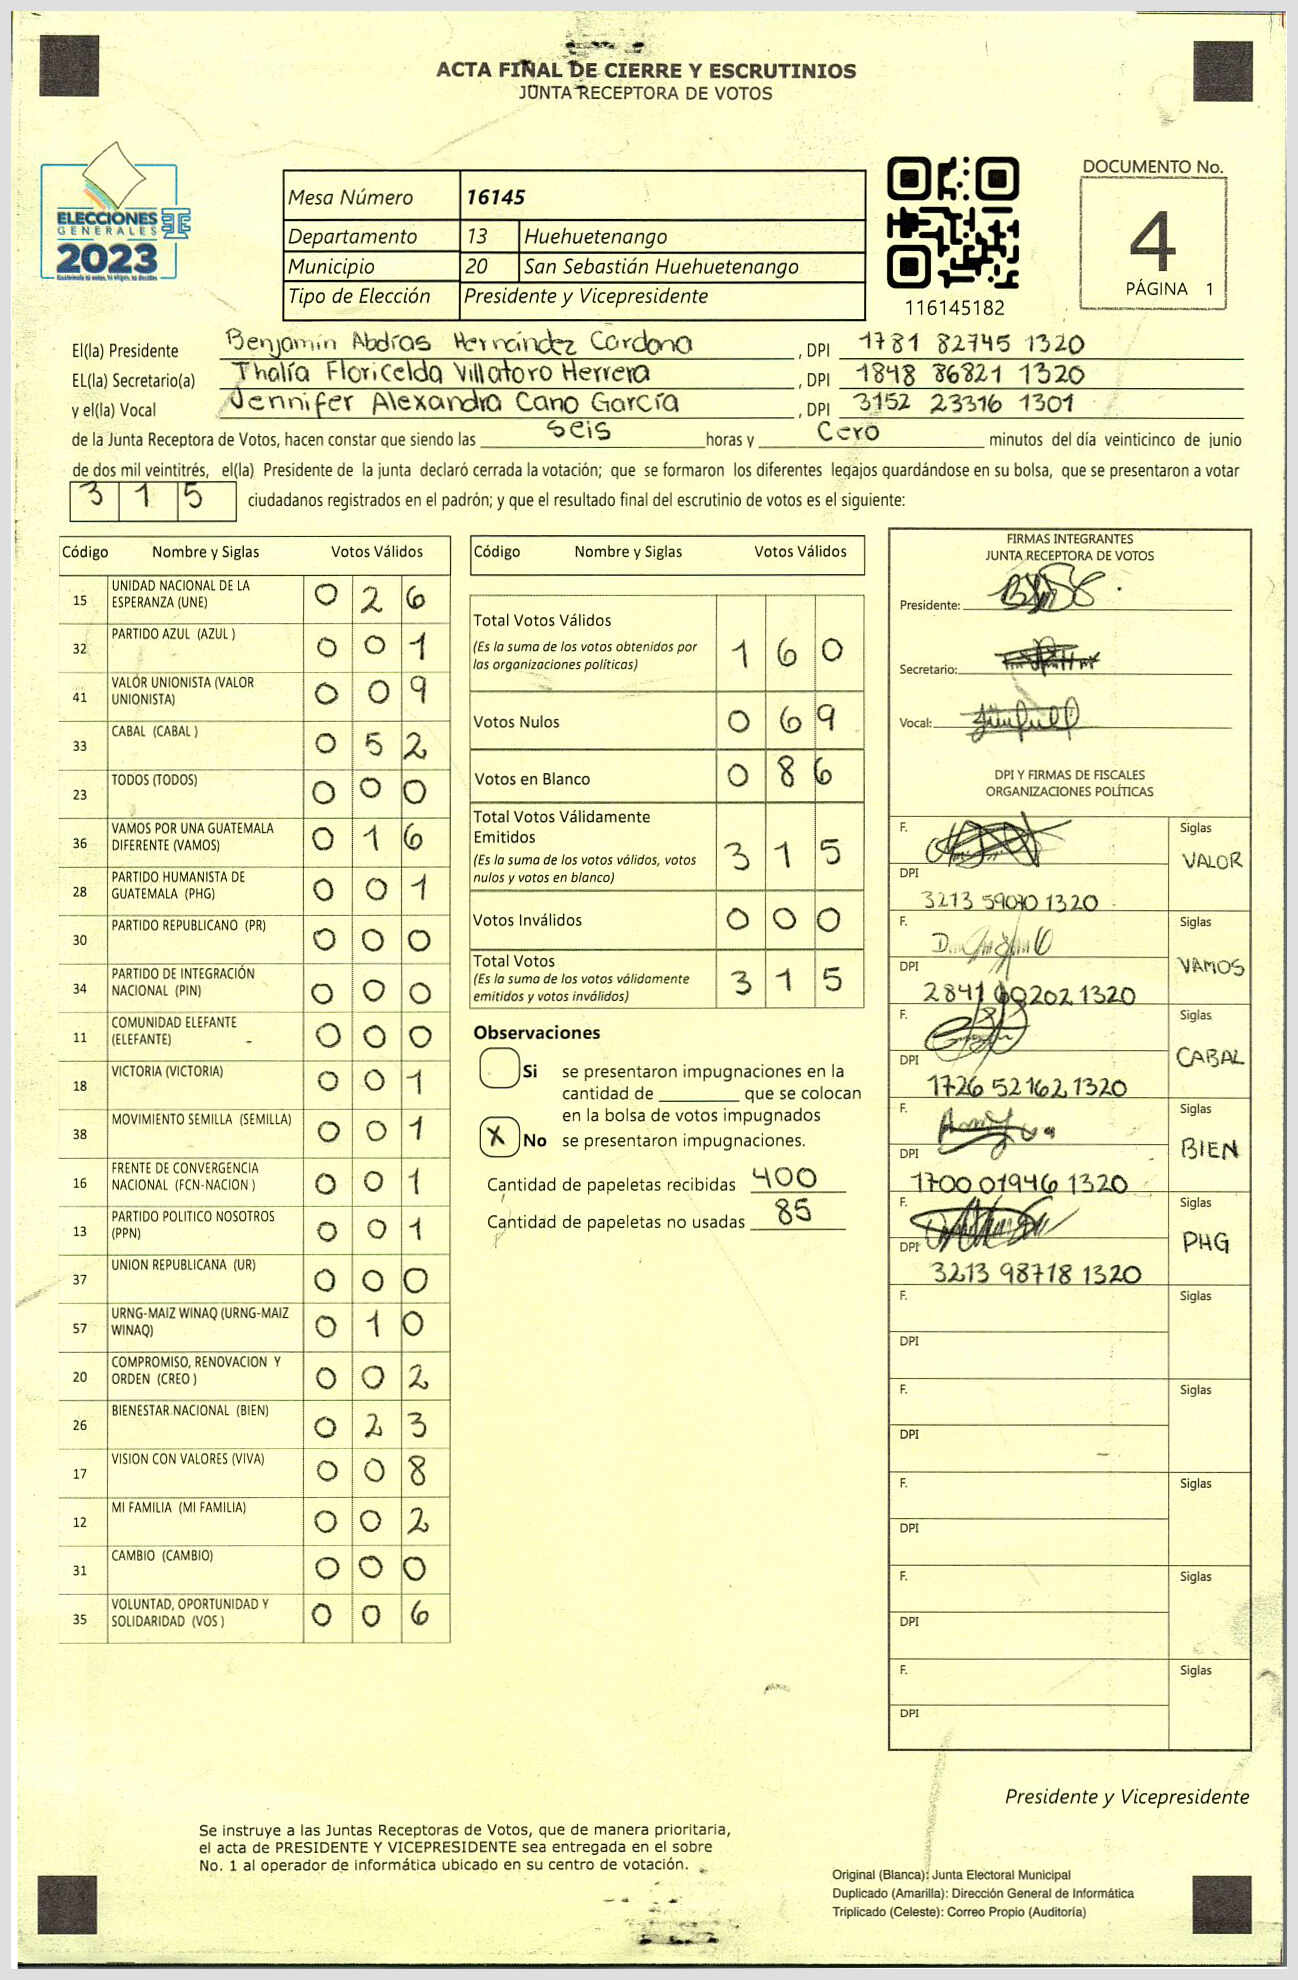 ACTA FINAL DE CIERRE Y ESCRUTINIOS
JUNTA RECEPTORA DE VOTOS
ELECCIONES
GENERALES
2023
Mesa Número 16145
Departamento 13 Huehuetenango
Municipio 20 San Sebastián Huehuetenango
Tipo de Elección Presidente y Vicepresidente
116145182
DOCUMENTO No.
4
PÁGINA 1
El(la) Presidente Benjamin Abdías Hernández Cardona , DPI 1781 82745 1320
EL(la) Secretario(a) Thalía Floricelda Villatoro Herrera , DPI 1848 86821 1320
y el(la) Vocal Jennifer Alexandra Cano García , DPI 3152 23316 1301
de la Junta Receptora de Votos, hacen constar que siendo las seis horas y Cero minutos del día veinticinco de junio
de dos mil veintitrés, el(la) Presidente de la junta declaró cerrada la votación; que se formaron los diferentes legajos guardándose en su bolsa, que se presentaron a votar
3 1 5 ciudadanos registrados en el padrón; y que el resultado final del escrutinio de votos es el siguiente:
Código Nombre y Siglas Votos Válidos
15 UNIDAD NACIONAL DE LA ESPERANZA (UNE) 0 2 6
32 PARTIDO AZUL (AZUL ) 0 0 1
41 VALOR UNIONISTA (VALOR UNIONISTA) 0 0 9
33 CABAL (CABAL ) 0 5 2
23 TODOS (TODOS) 0 0 0
36 VAMOS POR UNA GUATEMALA DIFERENTE (VAMOS) 0 1 6
28 PARTIDO HUMANISTA DE GUATEMALA (PHG) 0 0 1
30 PARTIDO REPUBLICANO (PR) 0 0 0
34 PARTIDO DE INTEGRACIÓN NACIONAL (PIN) 0 0 0
11 COMUNIDAD ELEFANTE (ELEFANTE) 0 0 0
18 VICTORIA (VICTORIA) 0 0 1
38 MOVIMIENTO SEMILLA (SEMILLA) 0 0 1
16 FRENTE DE CONVERGENCIA NACIONAL (FCN-NACION ) 0 0 1
13 PARTIDO POLITICO NOSOTROS (PPN) 0 0 1
37 UNION REPUBLICANA (UR) 0 0 0
57 URNG-MAIZ WINAQ (URNG-MAIZ WINAQ) 0 1 0
20 COMPROMISO, RENOVACION Y ORDEN (CREO ) 0 0 2
26 BIENESTAR NACIONAL (BIEN) 0 2 3
17 VISION CON VALORES (VIVA) 0 0 8
12 MI FAMILIA (MI FAMILIA) 0 0 2
31 CAMBIO (CAMBIO) 0 0 0
35 VOLUNTAD, OPORTUNIDAD Y SOLIDARIDAD (VOS ) 0 0 6
Código Nombre y Siglas Votos Válidos
Total Votos Válidos 1 6 0
(Es la suma de los votos obtenidos por
las organizaciones políticas)
Votos Nulos 0 6 9
Votos en Blanco 0 8 6
Total Votos Válidamente
Emitidos 3 1 5
(Es la suma de los votos válidos, votos
nulos y votos en blanco)
Votos Inválidos 0 0 0
Total Votos 3 1 5
(Es la suma de los votos válidamente
emitidos y votos inválidos)
Observaciones
Si se presentaron impugnaciones en la
cantidad de ________ que se colocan
en la bolsa de votos impugnados
X No se presentaron impugnaciones.
Cantidad de papeletas recibidas 400
Cantidad de papeletas no usadas 85
FIRMAS INTEGRANTES
JUNTA RECEPTORA DE VOTOS
Presidente:
Secretario:
Vocal:
DPI Y FIRMAS DE FISCALES
ORGANIZACIONES POLÍTICAS
F. Siglas
VALOR
DPI
3213 59070 1320
F. Siglas
VAMOS
DPI
2841 60202 1320
F. Siglas
CABAL
DPI
1726 52162 1320
F. Siglas
BIEN
DPI
1700 01946 1320
F. Siglas
PHG
DPI
3213 98718 1320
F. Siglas
DPI
F. Siglas
DPI
F. Siglas
DPI
F. Siglas
DPI
F. Siglas
DPI
Presidente y Vicepresidente
Se instruye a las Juntas Receptoras de Votos, que de manera prioritaria,
el acta de PRESIDENTE Y VICEPRESIDENTE sea entregada en el sobre
No. 1 al operador de informática ubicado en su centro de votación.
Original (Blanca): Junta Electoral Municipal
Duplicado (Amarilla): Dirección General de Informática
Triplicado (Celeste): Correo Propio (Auditoría)